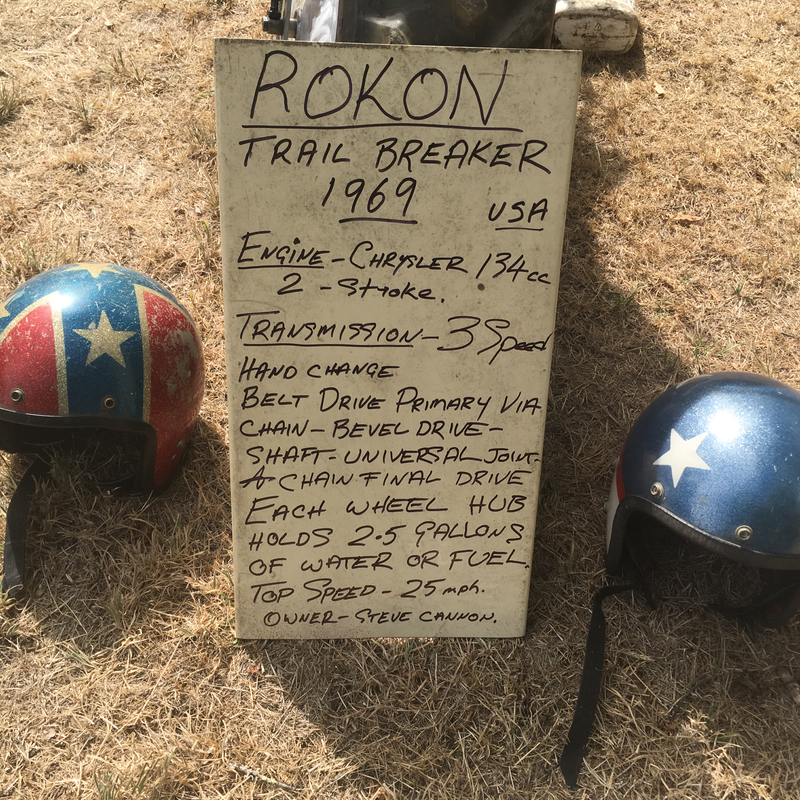 ROKON
TRAIL BREAKER
1969
USA
ENGINE - CHRYSLER 134cc
2 - Stroke.
TRANSMISSION - 3 Speed
HAND CHANGE
BELT DRIVE PRIMARY VIA
CHAIN - BEVEL DRIVE -
SHAFT - UNIVERSAL JOINT -
A CHAIN FINAL DRIVE
EACH WHEEL HUB
HOLDS 2.5 GALLONS
OF WATER OR FUEL.
TOP SPEED - 25 mph.
OWNER - STEVE CANNON.